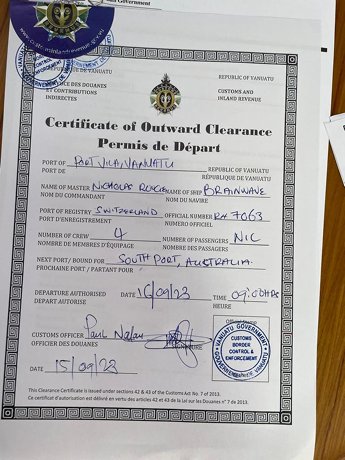 Government
www.customsinlandrevenue.gov.vu
REPUBLIC OF VANUATU
REPUBLIC OF VANUATU
SERVICE DES DOUANES
ET CONTRIBUTIONS
INDIRECTES
CUSTOMS AND
INLAND REVENUE
Certificate of Outward Clearance
Permis de Départ
PORT OF PORT VILA, VANUATU REPUBLIC OF VANUATU
PORT DE RÉPUBLIQUE DE VANUATU
NAME OF MASTER NICHOLAS NAME OF SHIP BRAINWAVE
NOM DU COMMANDANT NOM DU NAVIRE
PORT OF REGISTRY SWITZERLAND OFFICIAL NUMBER 7063
PORT D'ENREGISTREMENT NUMERO OFFICIEL
NUMBER OF CREW 4 NUMBER OF PASSENGERS NIL
NOMBRE DE MEMBRES D'ÉQUIPAGE NOMBRE DES PASSAGERS
NEXT PORT/BOUND FOR SOUTH PORT, AUSTRALIA
PROCHAINE PORT / PARTANT POUR
DEPARTURE AUTHORISED DATE 16/09/23 TIME
DEPART AUTORISE HEURE
CUSTOMS OFFICER Paul
OFFICIER DES DOUANES
DATE 15/09/23
VANUATU GOVERNMENT
CUSTOMS
BORDER
CONTROL &
ENFORCEMENT
This Clearance Certificate is issued under sections 42 & 43 of the Customs Act No. 7 of 2013.
Ce certificat d'autorisation est délivré en vertu des articles 42 et 43 de la Loi sur les Douanes n° 7 de 2013.